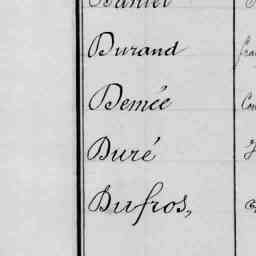 Durand
Demée
Duré
Dufros,